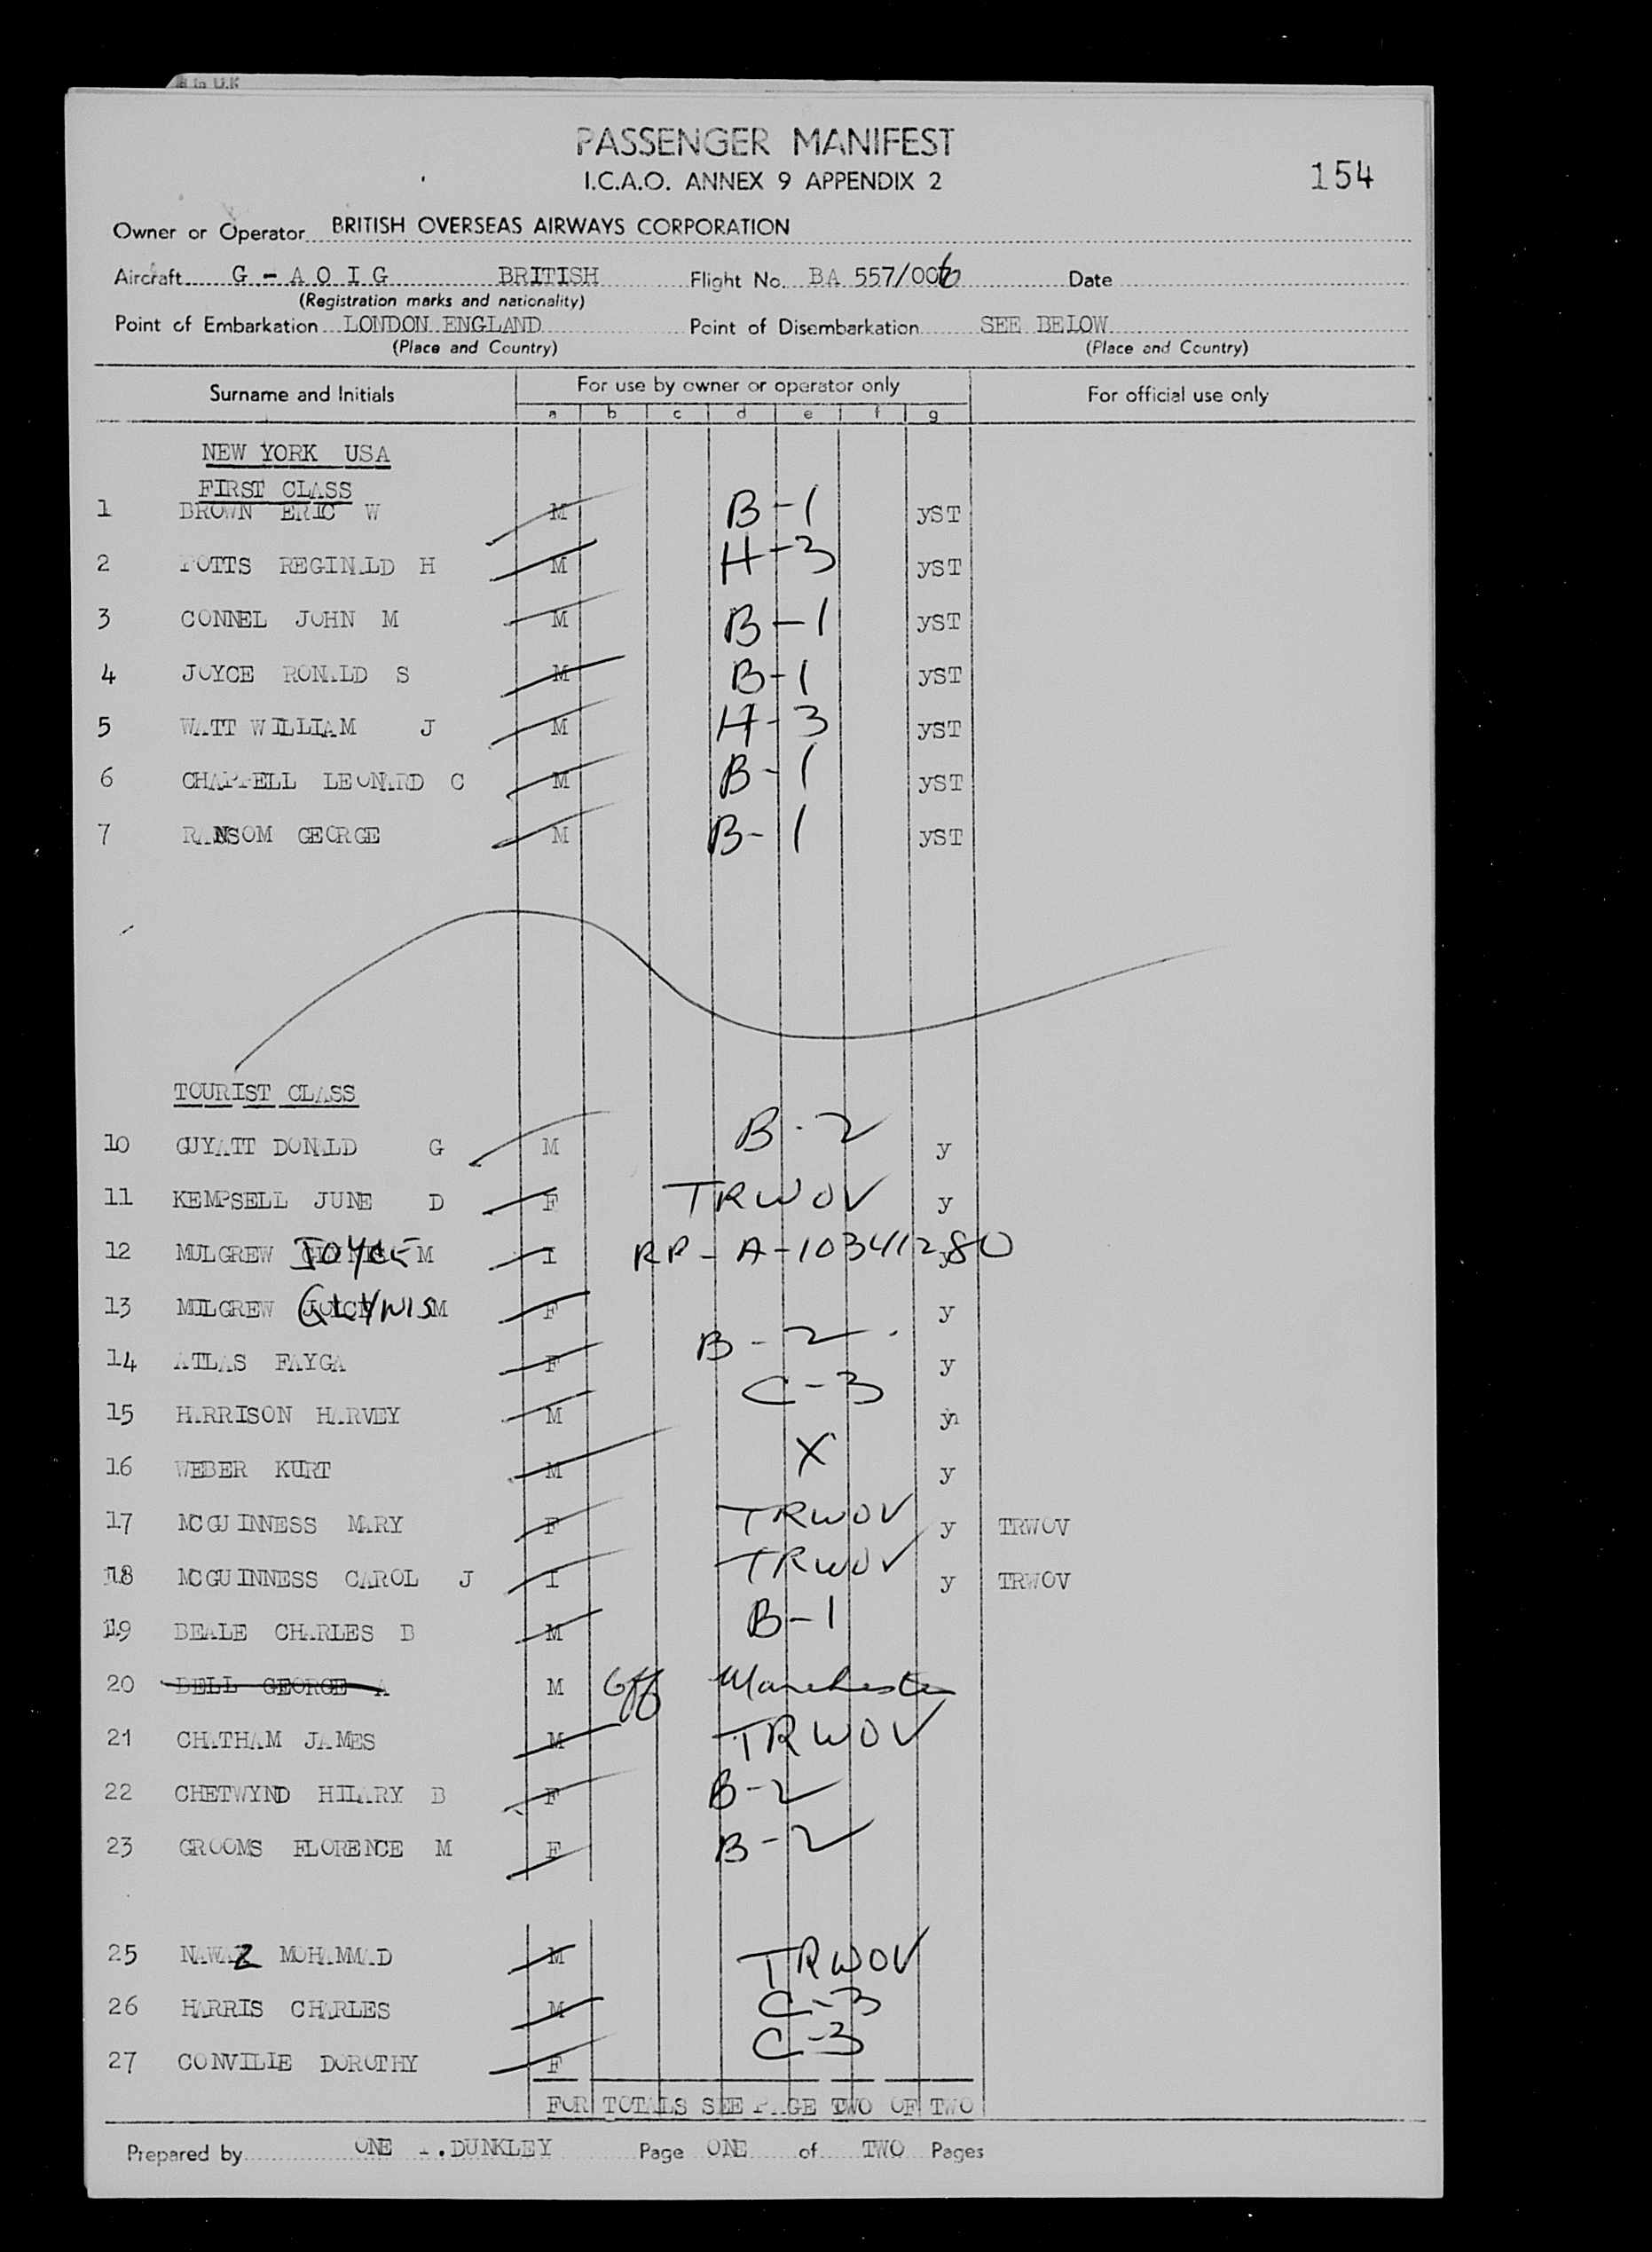 PASSENGER MANIFEST
I.C.A.O. ANNEX 9 APPENDIX 2
154
Owner or Operator BRITISH OVERSEAS AIRWAYS CORPORATION
Aircraft G - A O I G BRITISH Flight No. BA 557/006 Date
(Registration marks and nationality)
Point of Embarkation LONDON ENGLAND Point of Disembarkation SEE BELOW
(Place and Country) (Place and Country)
Surname and Initials For use by owner or operator only For official use only
a b c d e f g
NEW YORK USA
FIRST CLASS
1 BROWN ERIC W M B-1 yST
2 POTTS REGINALD H M H-3 yST
3 CONNEL JOHN M M B-1 yST
4 JOYCE RONALD S M B-1 yST
5 WATT WILLIAM J M H-3 yST
6 CHAPPELL LEONARD C M B-1 yST
7 RANSOM GEORGE M B-1 yST
TOURIST CLASS
10 GUYATT DONALD G M B-2 y
11 KEMPSELL JUNE D F TRWOV y
12 MULGREW JOYCE M I RP-A-10341280 y
13 MULGREW GLYNIS M F y
14 ATLAS FAYGA F B-2 y
15 HARRISON HARVEY M C-3 y
16 WEBER KURT M X y
17 MCGUINNESS MARY F TRWOV y TRWOV
18 MCGUINNESS CAROL J I TRWOV y TRWOV
19 BEALE CHARLES B M B-1
20 BELL GEORGE A M Off Manchester
21 CHATHAM JAMES M TRWOV
22 CHETWYND HILARY B F B-2
23 GROOMS FLORENCE M F B-2
25 NAWAZ MOHAMMAD M TRWOV
26 HARRIS CHARLES M C-3
27 CONVILLE DOROTHY F C-3
FOR TOTALS SEE PAGE TWO OF TWO
Prepared by ONE .DUNKLEY Page ONE of TWO Pages